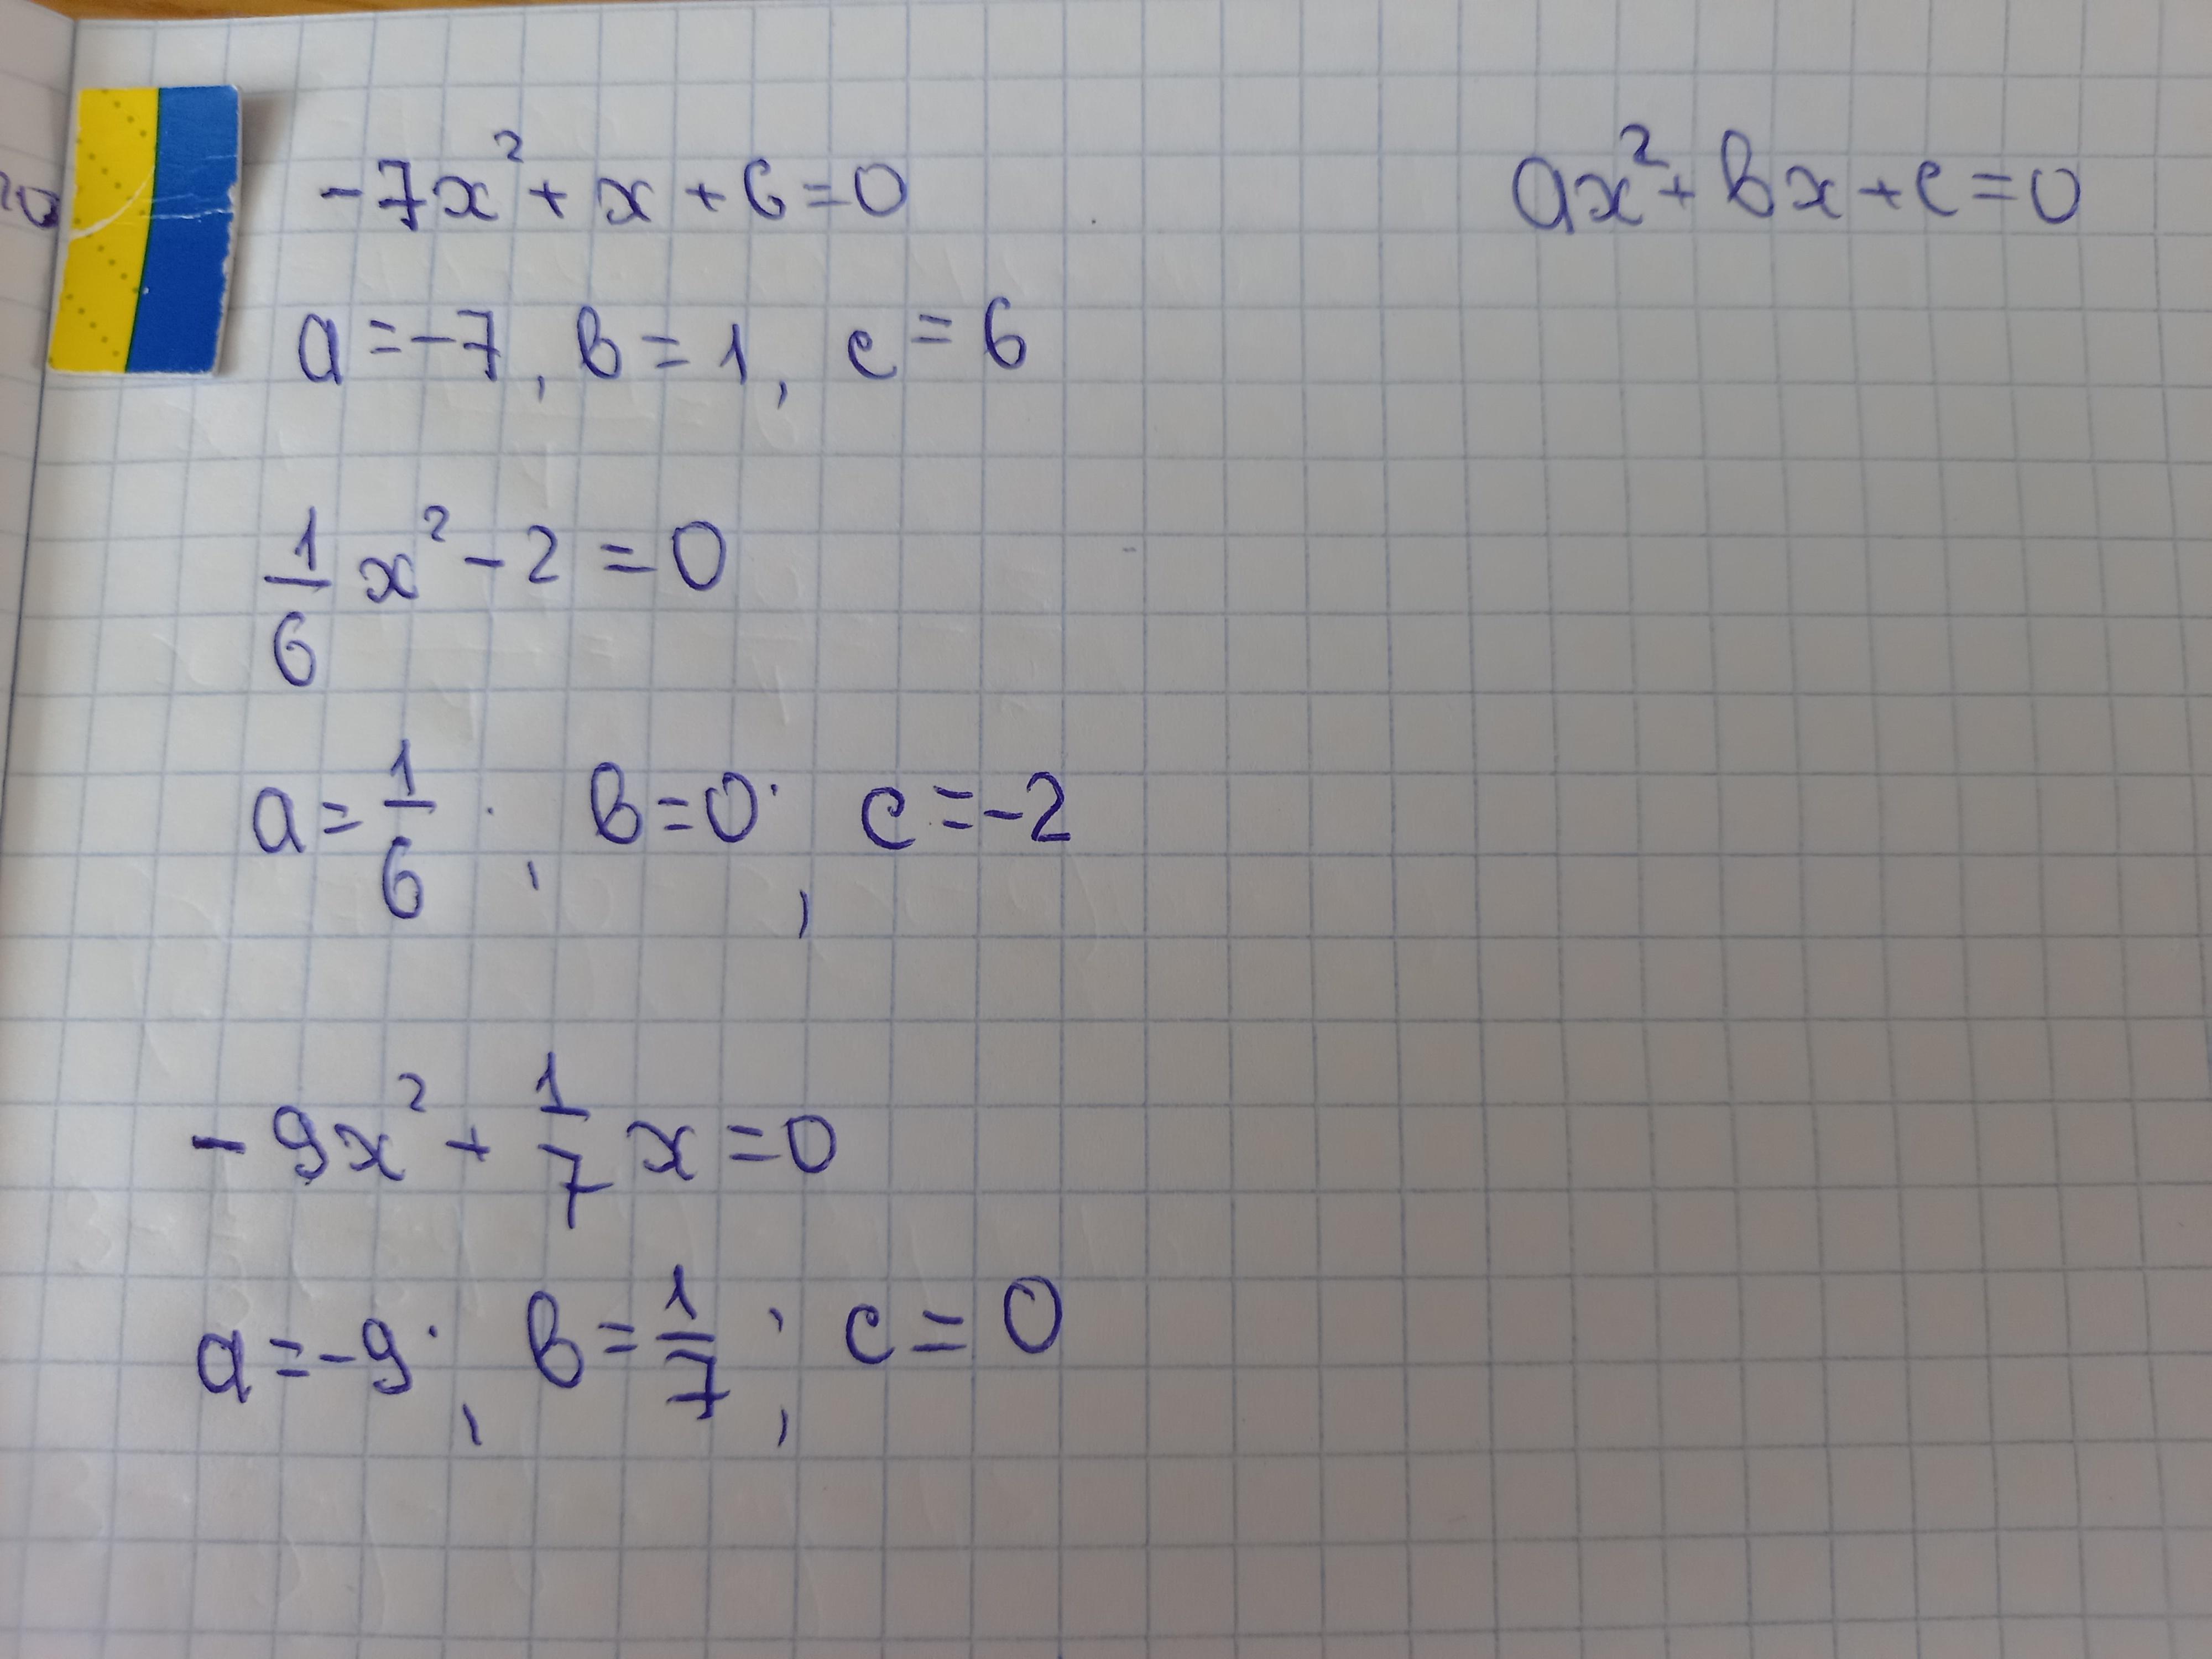 -7x² + x + 6 = 0
ax² + bx + c = 0
a = -7, b = 1, c = 6
1/6 x² - 2 = 0
a = 1/6; b = 0; c = -2
-9x² + 1/7 x = 0
a = -9; b = 1/7; c = 0